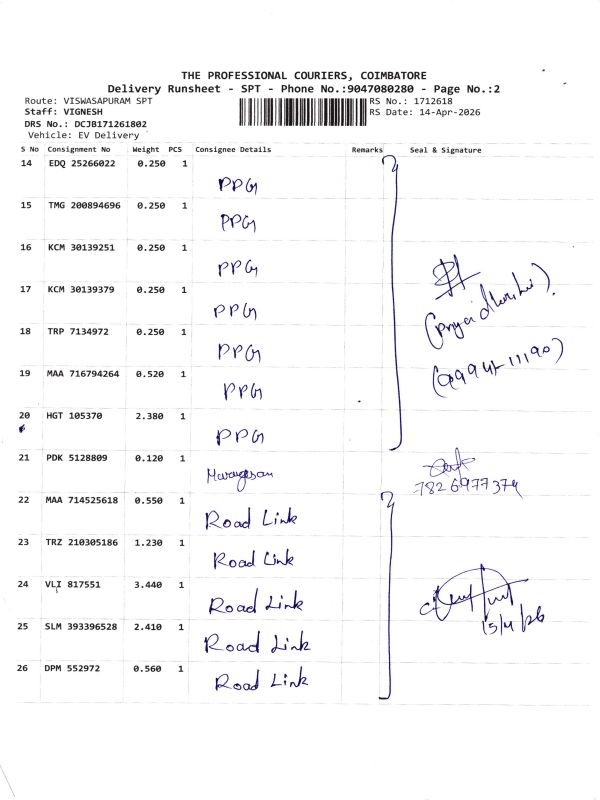 THE PROFESSIONAL COURIERS, COIMBATORE
Delivery Runsheet - SPT - Phone No.:9047080280 - Page No.:2
Route: VISWASAPURAM SPT
Staff: VIGNESH
DRS No.: DCJB171261802
Vehicle: EV Delivery
RS No.: 1712618
RS Date: 14-Apr-2026
S No Consignment No Weight PCS Consignee Details Remarks Seal & Signature
14 EDQ 25266022 0.250 1
PPG
15 TMG 200894696 0.250 1
PPG
16 KCM 30139251 0.250 1
PPG
17 KCM 30139379 0.250 1
PPG
18 TRP 7134972 0.250 1
PPG
19 MAA 716794264 0.520 1
PPG
20 HGT 105370 2.380 1
PPG
(9994-11190)
21 PDK 5128809 0.120 1
Murugesan
7826977374
22 MAA 714525618 0.550 1
Road Link
23 TRZ 210305186 1.230 1
Road Link
24 VLI 817551 3.440 1
Road Link
15/4/26
25 SLM 393396528 2.410 1
Road Link
26 DPM 552972 0.560 1
Road Link